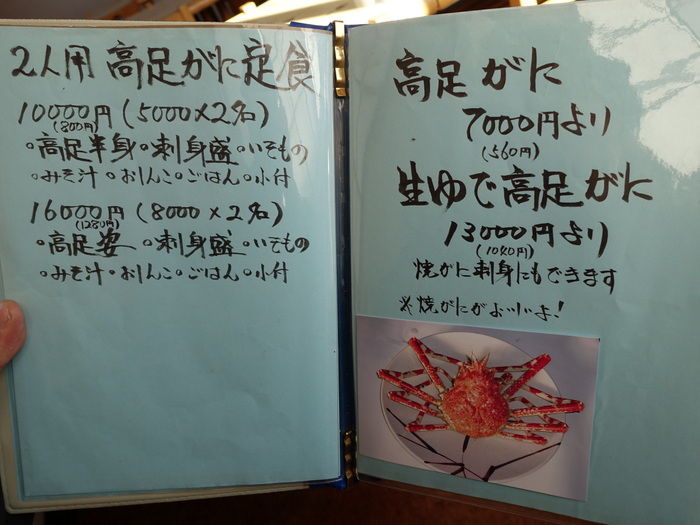 2人用 高足がに定食
10000円(5000×2名)
(800円)
○高足半身 ○刺身盛 ○いそもの
○みそ汁 ○おしんこ ○ごはん ○小付
16000円(8000×2名)
(1280円)
○高足姿 ○刺身盛 ○いそもの
○みそ汁 ○おしんこ ○ごはん ○小付
高足がに
7000円より
(560円)
生ゆで高足がに
13000円より
(1040円)
焼がに刺身にもできます
※焼がにがおいしいよ!